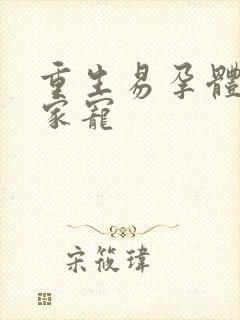 重生易孕體
家寵
宋筱瑋